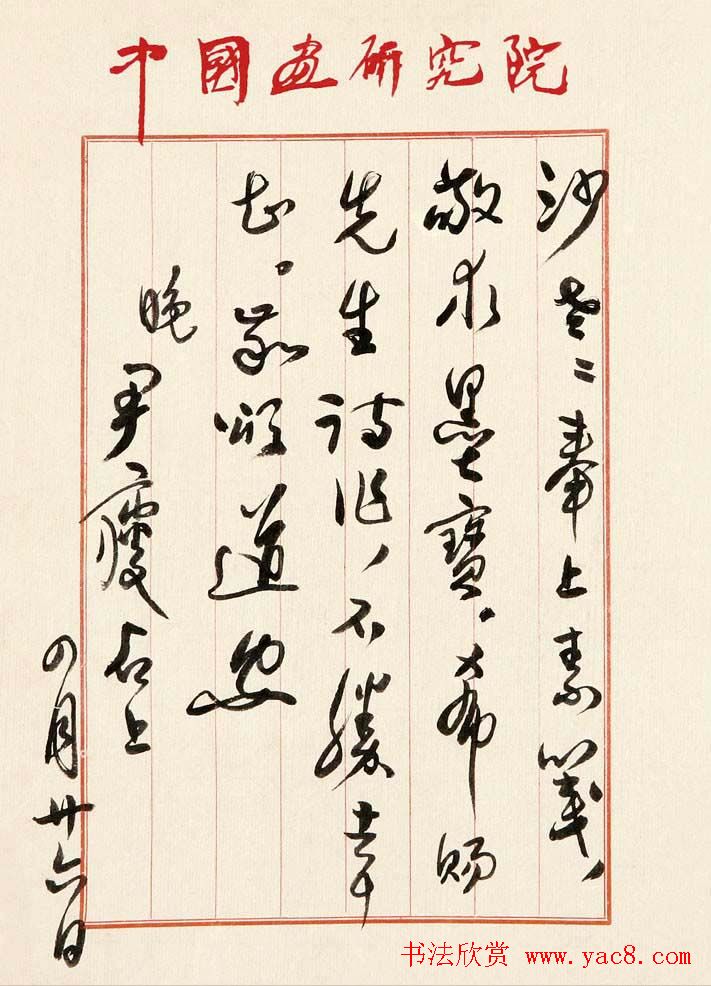 中國画研究院
沙老：奉上素箋，
敬求墨寶。希賜
先生詩作，不勝幸
甚。敬頌道安
晚
尹瘦石上
四月廿六日
书法欣赏 www.yac8.com